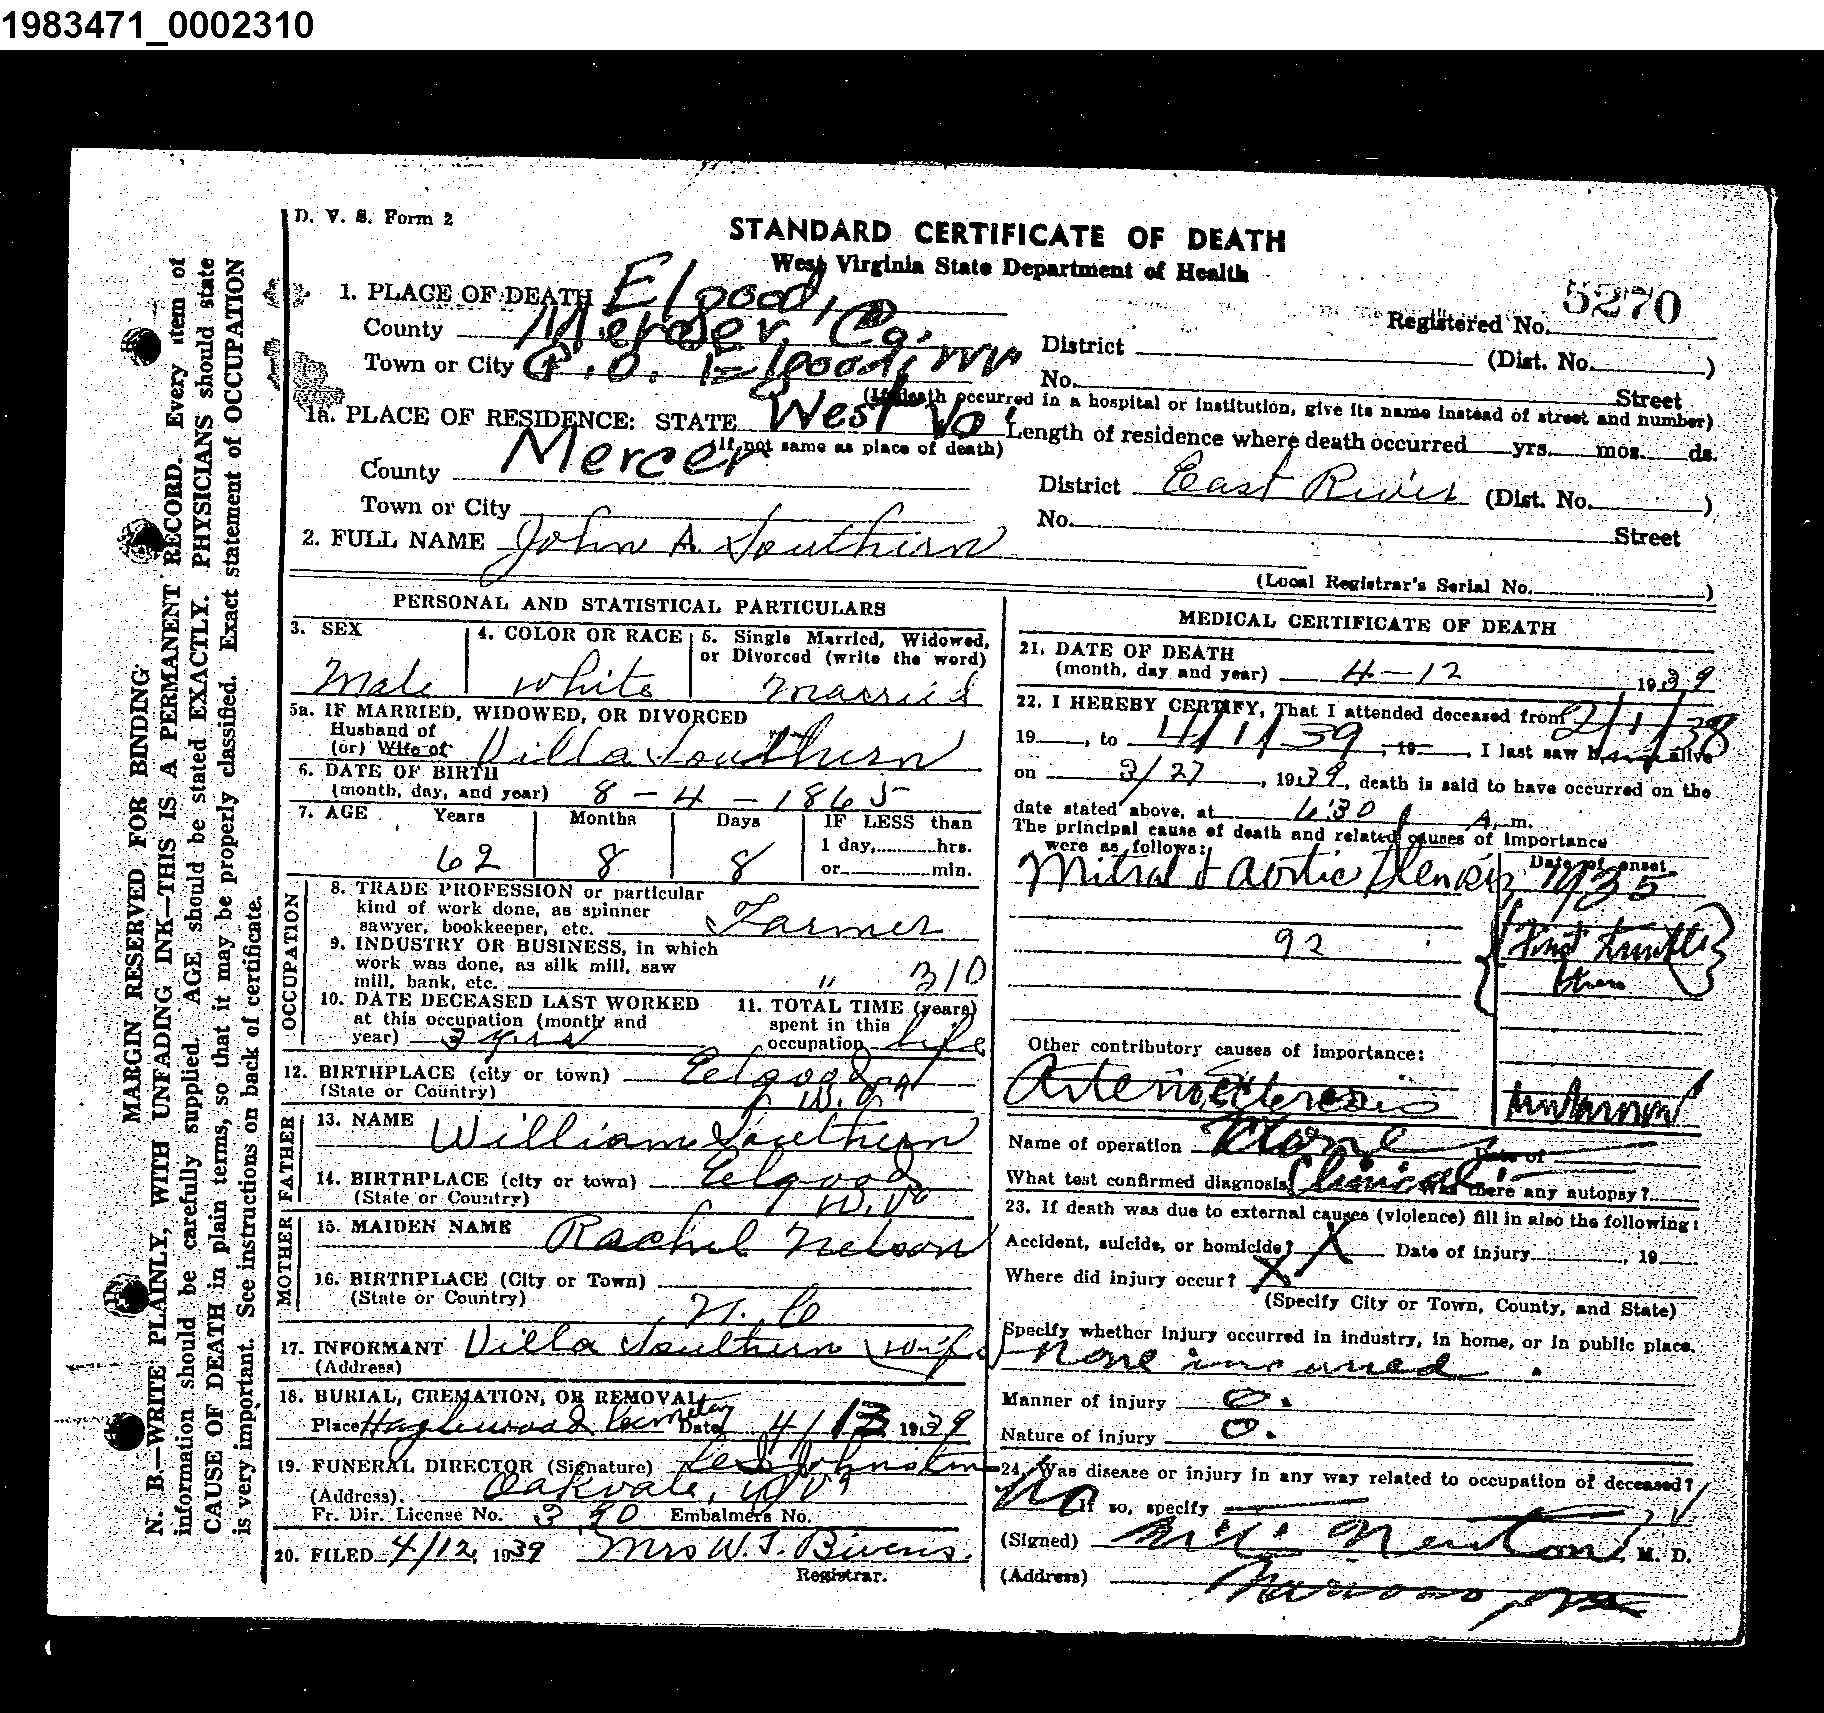 1983471_0002310
D. V. S. Form 2
STANDARD CERTIFICATE OF DEATH
West Virginia State Department of Health
5270
1. PLACE OF DEATH Elgood,
Registered No.
County Mercer, Co.
District (Dist. No. )
Town or City P.O. Elgood,
No. Street
(If death occurred in a hospital or institution, give its name instead of street and number)
1a. PLACE OF RESIDENCE: STATE West Va.
(If not same as place of death)
Length of residence where death occurred yrs. mos. ds.
County Mercer
District East River (Dist. No. )
Town or City
No. Street
2. FULL NAME John A. Southern
(Local Registrar's Serial No. )
PERSONAL AND STATISTICAL PARTICULARS
3. SEX
Male
4. COLOR OR RACE
White
5. Single Married, Widowed, or Divorced (write the word)
Married
5a. IF MARRIED, WIDOWED, OR DIVORCED
Husband of
(or) Wife of Villa Southern
6. DATE OF BIRTH
(month, day, and year) 8 - 4 - 1865
7. AGE Years Months Days IF LESS than
1 day, hrs.
or min.
8 8
OCCUPATION
8. TRADE PROFESSION or particular
kind of work done, as spinner
sawyer, bookkeeper, etc. Farmer
9. INDUSTRY OR BUSINESS, in which
work was done, as silk mill, saw
mill, bank, etc. " 310
10. DATE DECEASED LAST WORKED
at this occupation (month and
year) 3 yrs
11. TOTAL TIME (years)
spent in this
occupation life
12. BIRTHPLACE (city or town) Elgood
(State or Country) W. Va
FATHER
13. NAME William Southern
14. BIRTHPLACE (city or town) Elgood
(State or Country) W. Va
MOTHER
15. MAIDEN NAME Rachel Nelson
16. BIRTHPLACE (City or Town)
(State or Country) N. C
17. INFORMANT Villa Southern (wife)
(Address)
18. BURIAL, CREMATION, OR REMOVAL
Place Haglewood Cemetery Date 4/13 1939
19. FUNERAL DIRECTOR (Signature) Johnston
(Address) Oakvale, W Va
Fr. Dir. License No. 390 Embalmers No.
20. FILED 4/12, 1939 Mrs W. T. Bivens
Registrar.
MEDICAL CERTIFICATE OF DEATH
21. DATE OF DEATH
(month, day and year) 4 - 12 1939
22. I HEREBY CERTIFY, That I attended deceased from 2/1/38
19 , to 4/1/39, 19 . I last saw him alive
on 3/27, 1939, death is said to have occurred on the
date stated above, at 6:30 A. m.
The principal cause of death and related causes of importance
were as follows:
Date of onset
Mitral & Aortic 1935
92
First trouble
Other contributory causes of importance:
Arteriosclerosis unknown
Name of operation None Date of
What test confirmed diagnosis Clinical Was there any autopsy?
23. If death was due to external causes (violence) fill in also the following:
Accident, suicide, or homicide? X Date of injury , 19
Where did injury occur? X
(Specify City or Town, County, and State)
Specify whether injury occurred in industry, in home, or in public place.
None incurred.
Manner of injury 0.
Nature of injury 0.
24. Was disease or injury in any way related to occupation of deceased?
No If so, specify
(Signed) Newton, M. D.
(Address)
MARGIN RESERVED FOR BINDING
N. B.—WRITE PLAINLY, WITH UNFADING INK—THIS IS A PERMANENT RECORD. Every item of
information should be carefully supplied. AGE should be stated EXACTLY. PHYSICIANS should state
CAUSE OF DEATH in plain terms, so that it may be properly classified. Exact statement of OCCUPATION
is very important. See instructions on back of certificate.